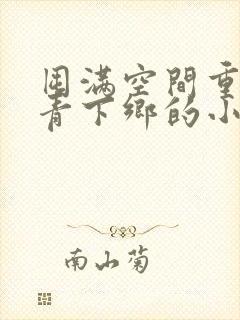 囤满空間重
青下鄉的小
南山菊